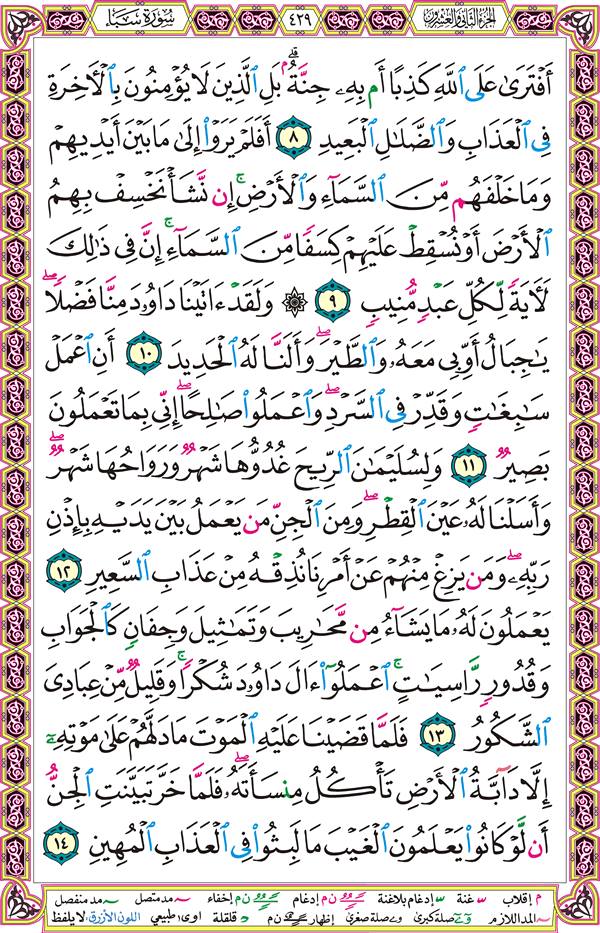 سُورَةُ سَبَإٍ ٤٢٩ الجزء الثاني والعشرون
أَفْتَرَىٰ عَلَى ٱللَّهِ كَذِبًا أَم بِهِۦ جِنَّةُۢ ۗ بَلِ ٱلَّذِينَ لَا يُؤْمِنُونَ بِٱلْأَخِرَةِ
فِى ٱلْعَذَابِ وَٱلضَّلَٰلِ ٱلْبَعِيدِ ٨ أَفَلَمْ يَرَوْا۟ إِلَىٰ مَا بَيْنَ أَيْدِيهِمْ
وَمَا خَلْفَهُم مِّنَ ٱلسَّمَآءِ وَٱلْأَرْضِ ۚ إِن نَّشَأْ نَخْسِفْ بِهِمُ
ٱلْأَرْضَ أَوْ نُسْقِطْ عَلَيْهِمْ كِسَفًا مِّنَ ٱلسَّمَآءِ ۚ إِنَّ فِى ذَٰلِكَ
لَأٓيَةً لِّكُلِّ عَبْدٍ مُّنِيبٍ ٩ ۞ وَلَقَدْ ءَاتَيْنَا دَاوُۥدَ مِنَّا فَضْلًا ۖ
يَٰجِبَالُ أَوِّبِى مَعَهُۥ وَٱلطَّيْرَ ۖ وَأَلَنَّا لَهُ ٱلْحَدِيدَ ١٠ أَنِ ٱعْمَلْ
سَٰبِغَٰتٍ وَقَدِّرْ فِى ٱلسَّرْدِ ۖ وَٱعْمَلُوا۟ صَٰلِحًا ۖ إِنِّى بِمَا تَعْمَلُونَ
بَصِيرٌ ١١ وَلِسُلَيْمَٰنَ ٱلرِّيحَ غُدُوُّهَا شَهْرٌ وَرَوَاحُهَا شَهْرٌ ۖ
وَأَسَلْنَا لَهُۥ عَيْنَ ٱلْقِطْرِ ۖ وَمِنَ ٱلْجِنِّ مَن يَعْمَلُ بَيْنَ يَدَيْهِ بِإِذْنِ
رَبِّهِۦ ۖ وَمَن يَزِغْ مِنْهُمْ عَنْ أَمْرِنَا نُذِقْهُ مِنْ عَذَابِ ٱلسَّعِيرِ ١٢
يَعْمَلُونَ لَهُۥ مَا يَشَآءُ مِن مَّحَٰرِيبَ وَتَمَٰثِيلَ وَجِفَانٍ كَٱلْجَوَابِ
وَقُدُورٍ رَّاسِيَٰتٍ ۚ ٱعْمَلُوٓا۟ ءَالَ دَاوُۥدَ شُكْرًا ۚ وَقَلِيلٌ مِّنْ عِبَادِىَ
ٱلشَّكُورُ ١٣ فَلَمَّا قَضَيْنَا عَلَيْهِ ٱلْمَوْتَ مَا دَلَّهُمْ عَلَىٰ مَوْتِهِۦٓ
إِلَّا دَآبَّةُ ٱلْأَرْضِ تَأْكُلُ مِنسَأَتَهُۥ ۖ فَلَمَّا خَرَّ تَبَيَّنَتِ ٱلْجِنُّ
أَن لَّوْ كَانُوا۟ يَعْلَمُونَ ٱلْغَيْبَ مَا لَبِثُوا۟ فِى ٱلْعَذَابِ ٱلْمُهِينِ ١٤
م إقلاب غنة إدغام بلاغنة ن م إدغام ن م إخفاء مد متصل مد منفصل
المد اللازم صلة كبرى صلة صغرى إظهار ن م قلقلة اوى طبيعي اللون الأزرق: لا يلفظ